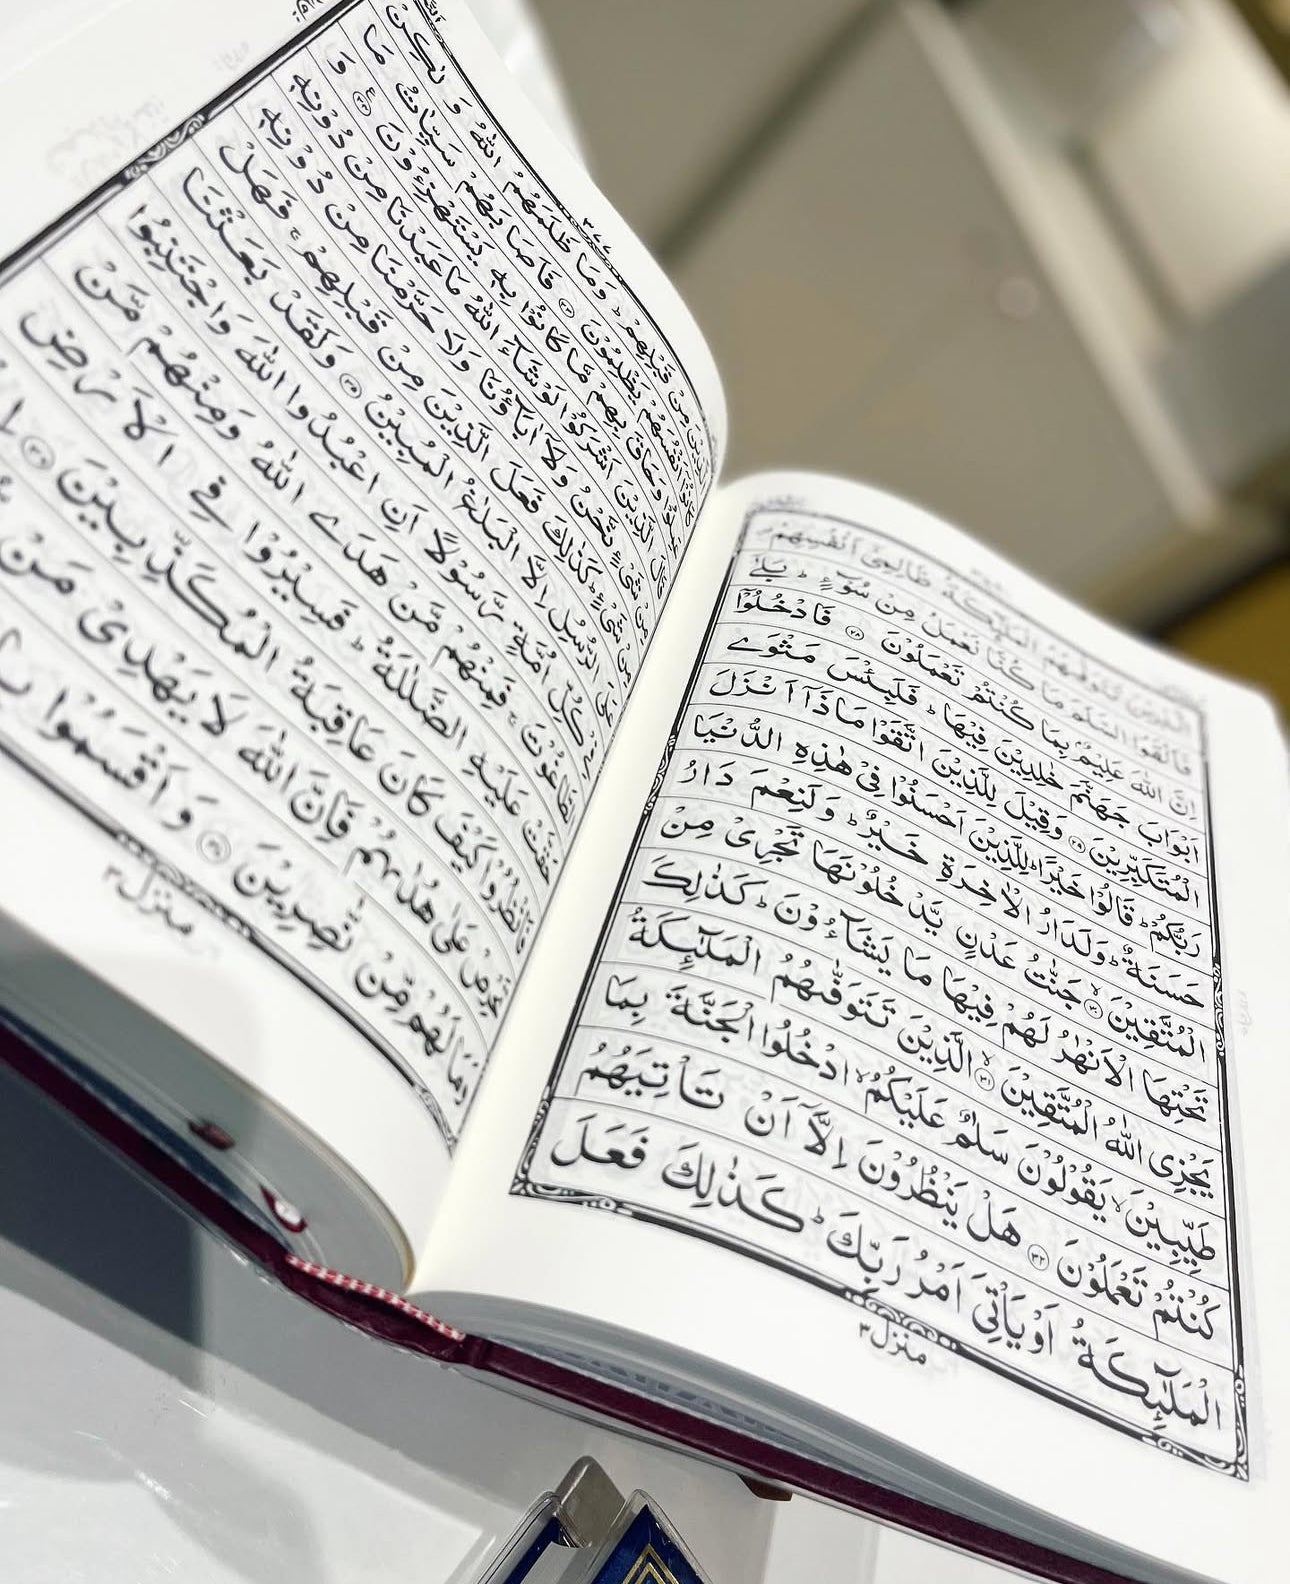 الَّذِيْنَ تَتَوَفّٰىهُمُ الْمَلٰٓئِكَةُ ظَالِمِيْٓ اَنْفُسِهِمْ
فَاَلْقَوُا السَّلَمَ مَا كُنَّا نَعْمَلُ مِنْ سُوْٓءٍ ؕ بَلٰٓى
اِنَّ اللّٰهَ عَلِيْمٌۢ بِمَا كُنْتُمْ تَعْمَلُوْنَ ۝۲۸ فَادْخُلُوْٓا
اَبْوَابَ جَهَنَّمَ خٰلِدِيْنَ فِيْهَا ؕ فَلَبِئْسَ مَثْوَى
الْمُتَكَبِّرِيْنَ ۝۲۹ وَقِيْلَ لِلَّذِيْنَ اتَّقَوْا مَاذَاۤ اَنْزَلَ
رَبُّكُمْ ؕ قَالُوْا خَيْرًا ؕ لِلَّذِيْنَ اَحْسَنُوْا فِيْ هٰذِهِ الدُّنْيَا
حَسَنَةٌ ؕ وَلَدَارُ الْاٰخِرَةِ خَيْرٌ ؕ وَلَنِعْمَ دَارُ
الْمُتَّقِيْنَ ۝۳۰ جَنّٰتُ عَدْنٍ يَّدْخُلُوْنَهَا تَجْرِيْ مِنْ
تَحْتِهَا الْاَنْهٰرُ لَهُمْ فِيْهَا مَا يَشَآءُوْنَ ؕ كَذٰلِكَ
يَجْزِي اللّٰهُ الْمُتَّقِيْنَ ۝۳۱ الَّذِيْنَ تَتَوَفّٰىهُمُ الْمَلٰٓئِكَةُ
طَيِّبِيْنَ ۙ يَقُوْلُوْنَ سَلٰمٌ عَلَيْكُمُ ۙ ادْخُلُوا الْجَنَّةَ بِمَا
كُنْتُمْ تَعْمَلُوْنَ ۝۳۲ هَلْ يَنْظُرُوْنَ اِلَّاۤ اَنْ تَاْتِيَهُمُ
الْمَلٰٓئِكَةُ اَوْ يَاْتِيَ اَمْرُ رَبِّكَ ؕ كَذٰلِكَ فَعَلَ
منزل۳
۳۷۷
الَّذِيْنَ مِنْ قَبْلِهِمْ ؕ وَمَا ظَلَمَهُمُ اللّٰهُ وَلٰكِنْ
كَانُوْٓا اَنْفُسَهُمْ يَظْلِمُوْنَ ۝۳۳ فَاَصَابَهُمْ سَيِّاٰتُ مَا
عَمِلُوْا وَحَاقَ بِهِمْ مَّا كَانُوْا بِهٖ يَسْتَهْزِءُوْنَ ۝۳۴ وَ
قَالَ الَّذِيْنَ اَشْرَكُوْا لَوْ شَآءَ اللّٰهُ مَا عَبَدْنَا مِنْ دُوْنِهٖ
مِنْ شَيْءٍ نَّحْنُ وَلَاۤ اٰبَآؤُنَا وَلَا حَرَّمْنَا مِنْ دُوْنِهٖ
مِنْ شَيْءٍ ؕ كَذٰلِكَ فَعَلَ الَّذِيْنَ مِنْ قَبْلِهِمْ ۚ فَهَلْ
عَلَى الرُّسُلِ اِلَّا الْبَلٰغُ الْمُبِيْنُ ۝۳۵ وَلَقَدْ بَعَثْنَا
فِيْ كُلِّ اُمَّةٍ رَّسُوْلًا اَنِ اعْبُدُوا اللّٰهَ وَاجْتَنِبُوا
الطَّاغُوْتَ ۚ فَمِنْهُمْ مَّنْ هَدَى اللّٰهُ وَمِنْهُمْ مَّنْ
حَقَّتْ عَلَيْهِ الضَّلٰلَةُ ؕ فَسِيْرُوْا فِي الْاَرْضِ
فَانْظُرُوْا كَيْفَ كَانَ عَاقِبَةُ الْمُكَذِّبِيْنَ ۝۳۶
تَحْرِصْ عَلٰى هُدٰىهُمْ فَاِنَّ اللّٰهَ لَا يَهْدِيْ مَنْ
وَمَا لَهُمْ مِّنْ نّٰصِرِيْنَ ۝۳۷ وَاَقْسَمُوْا
منزل۳